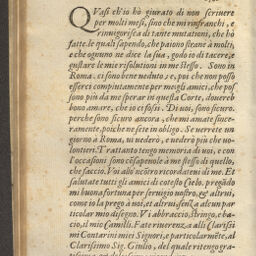 QVasi ch'io hò giurato di non scriuere
per molti mesi, sino che mi rinfranchi, e
rinuigorisca di tante mutationi, che hò
fatte le quali sapendo, che paiono strane à molti,
e che ognuno ne dice la sua, godo di tacere, e
gustare le mie risolutioni in me stesso. Sono in
Roma. ci sono bene veduto; e, poi che non posso
essere compiutamente per mesgli amici, che pos
sono più da me sperar in questa Corte, douerebbono
amare, che io ci fossi. Di voi, sono sicuro.
perche sono sicuro ancora, che mi amate sincera-
mente, poiche ne sete in obligo. Se verrete un
giorno à Roma, vi vederò, e vederò più che vo-
lontieri. Trattanto tengo memoria di voi, e con
l'occasioni sono consapeuole à me stesso di quello,
che faccio. Voi allo'ncontro ricordateui di me. Et
salutate tutti gli amici di cotesto Cielo. pregãdo
mi buona fortuna per seruigio vostro, & d'altrui,
come io la prego à voi, et altrui, senza alcun par
ticolar mio disegno. Vi abbraccio, stringo, e ba-
cio, il mio Camilli. Fate riuerenza alli Clarissi
mi Contarini miei Signori, e particolarmẽte, al
Clarissimo Sig. Giulio, del quale ritengo gra-